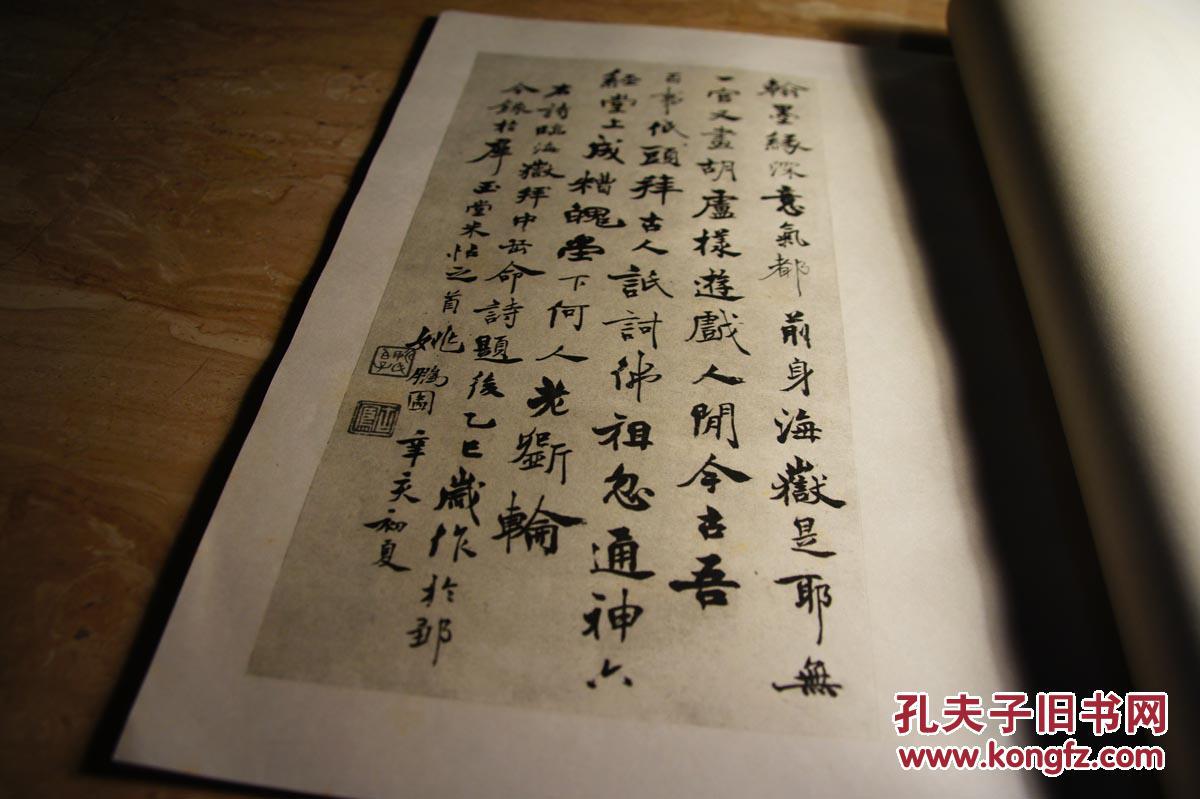 翰墨緣深意氣都前身海嶽是耶無
一官又畫胡盧樣遊戲人閒今古吾
百事低頭拜古人詆訶佛祖忽通神六
經堂上成糟魄堂下何人老斲輪
右詩臨海嶽拜中岳命詩題後乙巳歲作於
今錄於羣玉堂米帖之首姚鵬圖辛亥初夏
孔夫子旧书网
www.kongfz.com